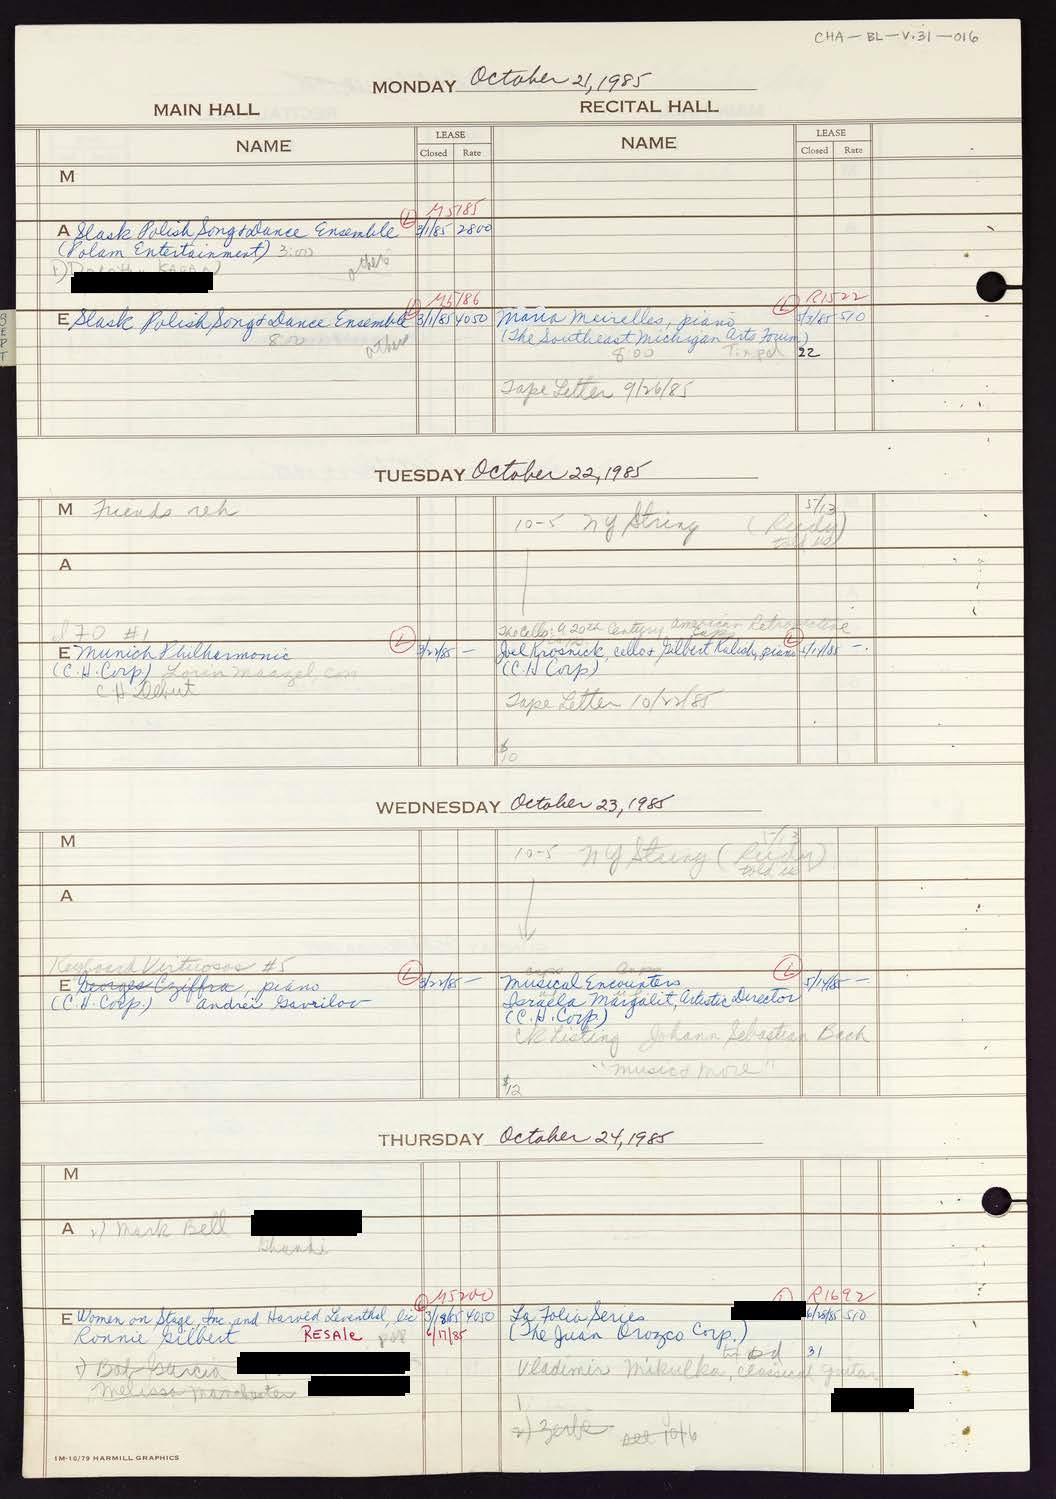 CHA-BL-V.31-016
MONDAY October 21, 1985
MAIN HALL
RECITAL HALL
NAME
LEASE
Closed Rate
NAME
LEASE
Closed Rate
M
M5185
A Slask Polish Song & Dance Ensemble L 3/1/85 2800
(Polam Entertainment) 3:00
others
1)
M5186
E Slask Polish Song & Dance Ensemble L 3/1/85 4050
8:00 others
R1522
Maria Meirelles, piano L 5/7/85 510
(The Southeast Michigan Arts Forum)
8:00 22
Tape Letter 9/26/85
SEPT
TUESDAY October 22, 1985
M Friends reh
5/13
10-5 NY String (Rudy)
told us
A
I70 #1
E Munich Philharmonic L 3/22/85 —
(C.H. Corp.) Lorin Maazel, con
CH Debut
The Cello: A 20th Century American Retrospective
Joel Krosnick, cello & Gilbert Kalish, piano L —
(C.H. Corp)
Tape Letter 10/22/85
$10
WEDNESDAY October 23, 1985
M
5/13
10-5 NY String (Rudy)
told us
A
Keyboard Virtuosos #5
E Georges Cziffra, piano L 3/22/85 —
(C.H. Corp.) Andrei Gavrilov
Musical Encounters L 5/14/85 —
Israela Margalit, Artistic Director
(C.H. Corp.)
CK Listing Johann Sebastian Bach
"Music & More"
$12
THURSDAY October 24, 1985
M
A 2) Mark Bell
M5200
E Women on Stage, Inc. and Harold Leventhal, L 3/18/85 4050
Ronnie Gilbert RESALE 6/17/85
1) Bob Garcia
Melissa Manchester
R1692
La Folia Series L 6/28/85 510
(The Juan Orozco Corp.)
31
Vladimir Mikulka, classical guitar
2) Zerbe see 10/6
1M-10/79 HARMILL GRAPHICS